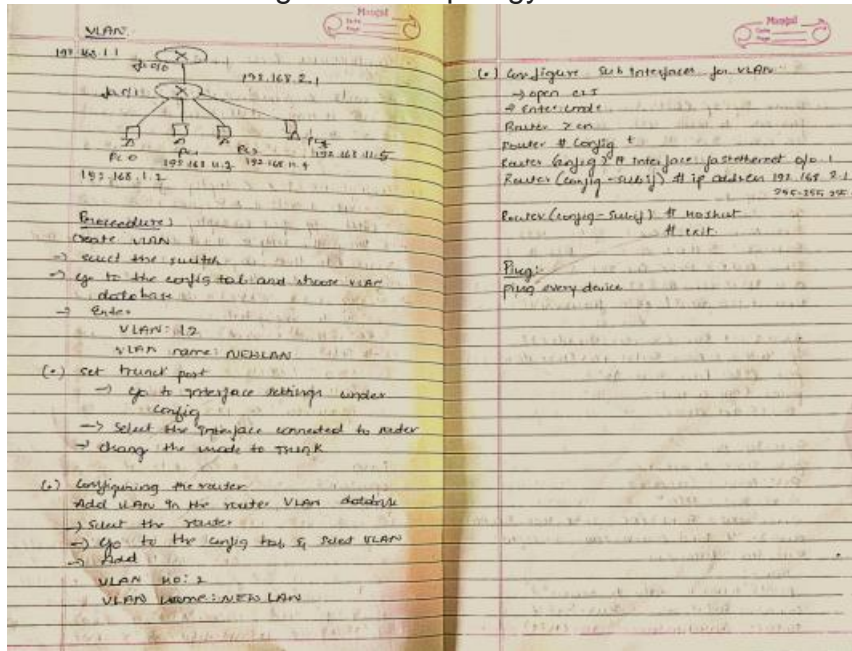 VLAN
192.168.1.1
fa 0/0
192.168.2.1
PC0
192.168.1.2
Procedure:
Create VLAN
→ select the switch
→ Go to the config tab and choose VLAN
database
→ Enter
VLAN: 12
VLAN name: NEWLAN
(•) set trunck port
→ Go to interface settings under
config
→ Select the interface connected to router
→ change the mode to TRUNK
(•) Configuring the router
Add VLAN in the router VLAN database
→ Select the router
→ Go to the config tab & select VLAN
→ Add
VLAN no: 2
VLAN name: NEW LAN
Mangal
Date
Page
(•) Configure Sub Interfaces for VLAN
→ open CLI
→ Enter mode
Router > en
Router # config t
Router (config) # Interface fastethernet 0/0.1
Router (config-subif) # ip address 192.168.2.1
255.255.255
Router (config-subif) # no shut
# exit
Ping:-
ping every device